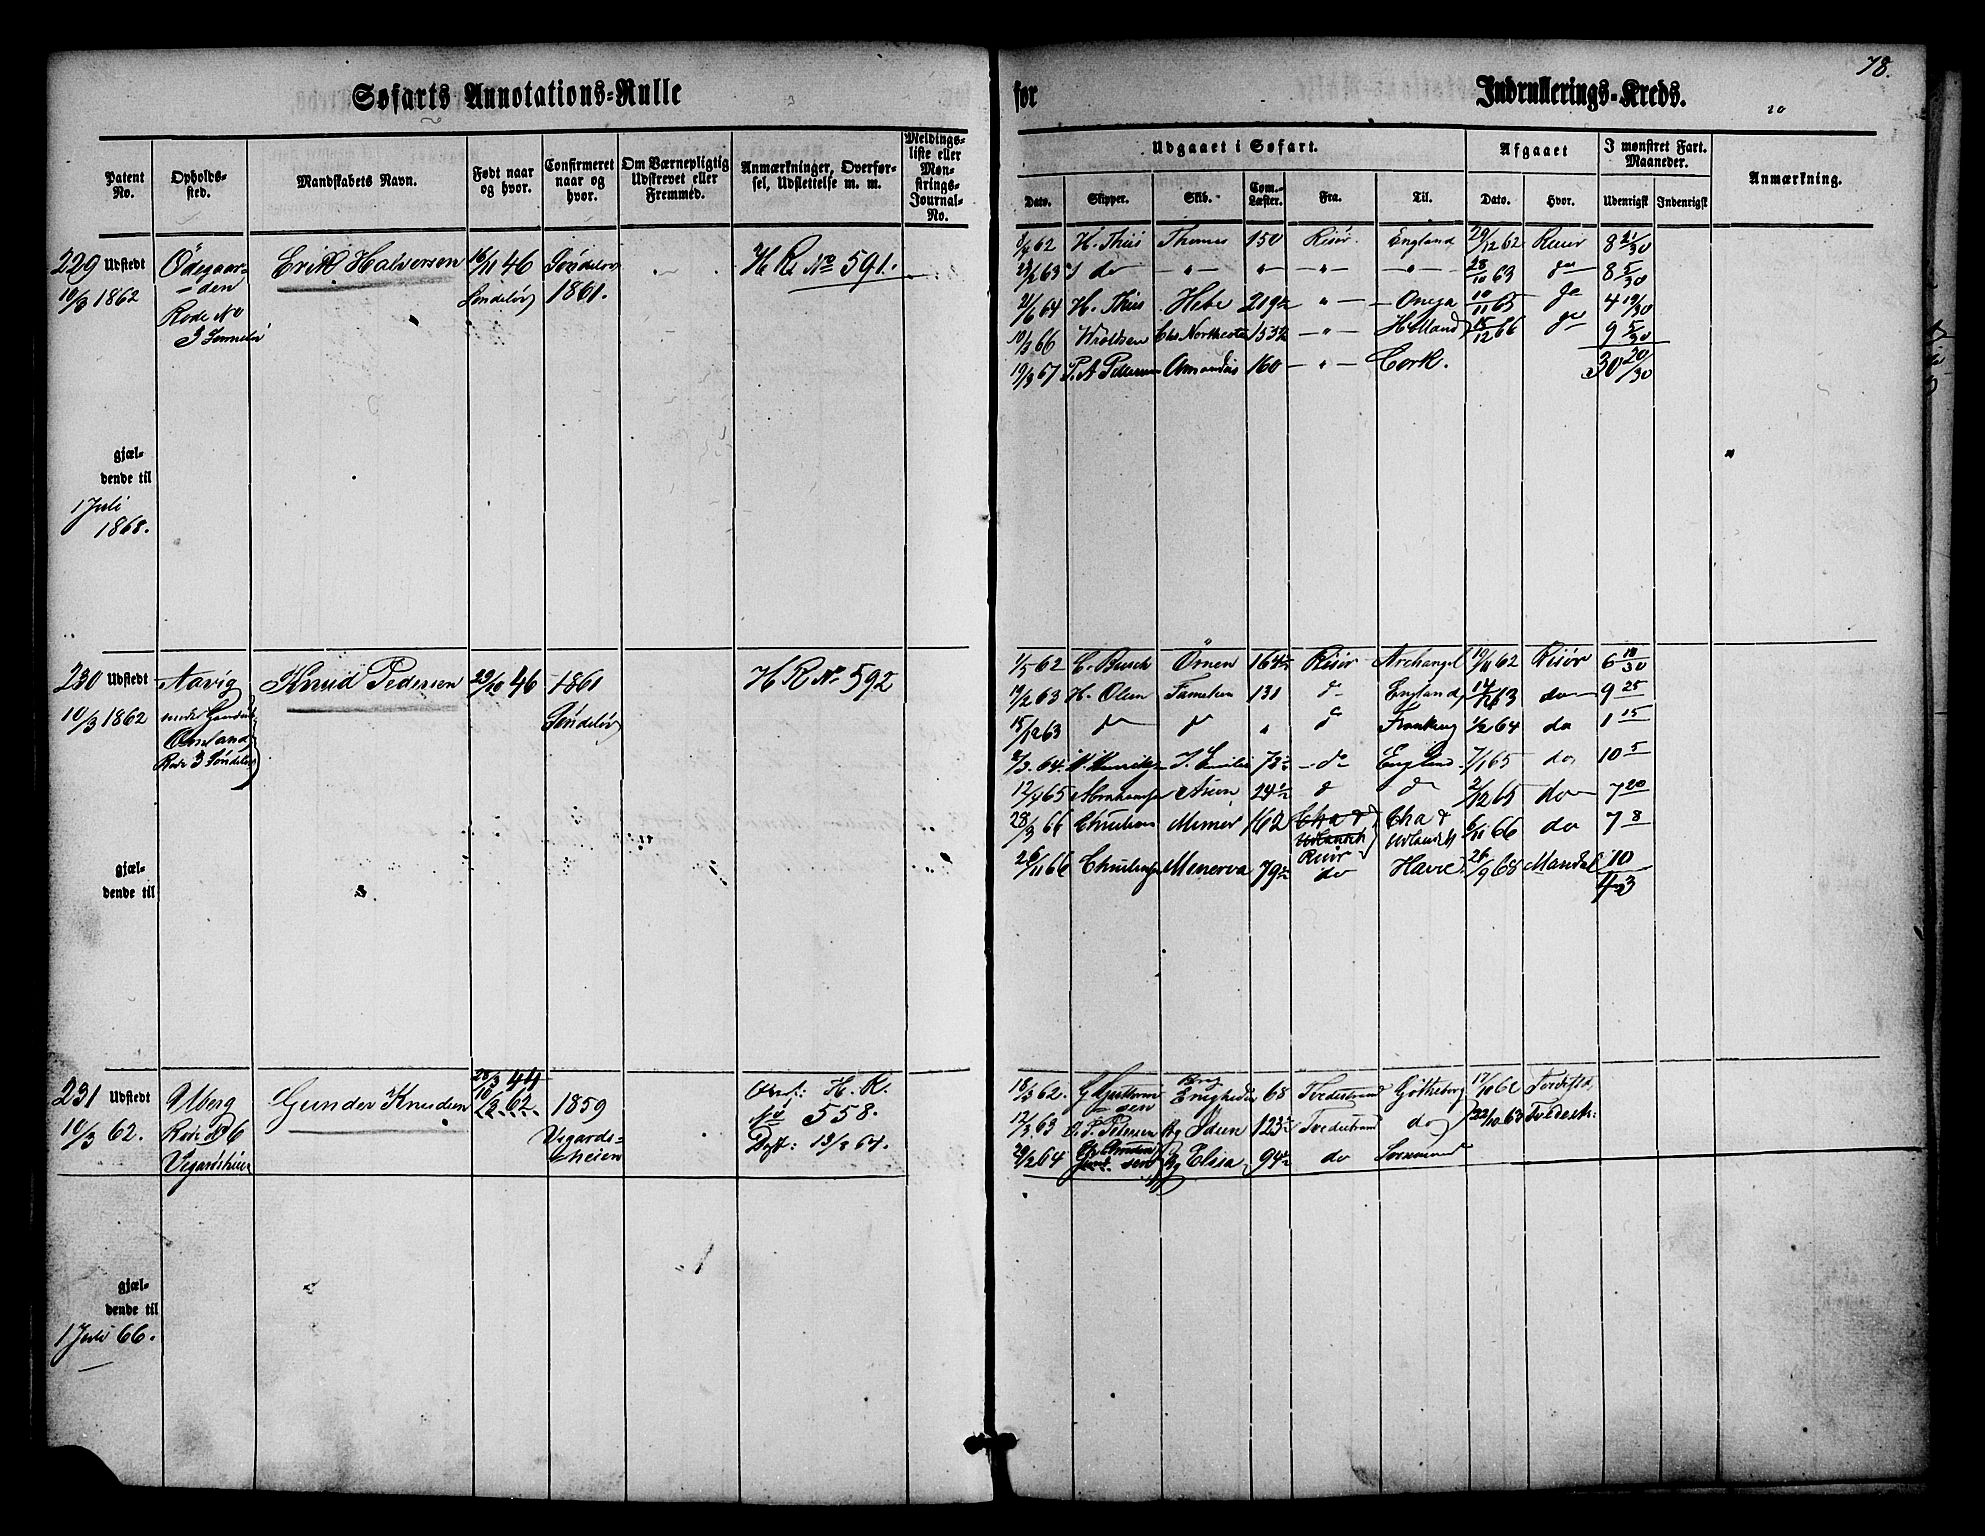 78.
Søfarts Annotations-Rulle
for
Indrullerings-Kreds.
Patent No.
Opholds-sted.
Mandskabets Navn.
Født naar og hvor.
Confirmeret naar og hvor.
Om Værnepligtig Udskrevet eller Fremmed.
Anmærkninger, Overfør-sel, Udslettelse m. m.
Meldings-liste eller Møn-strings-Journal-No.
Udgaaet i Søfart.
Afgaaet
I mønstret Fart. Maaneder.
Anmærkning.
Dato. Skipper. Skib. Com.-Læster. Fra. Til. Dato. Hvor. Udenrigsk Indenrigsk
229 Udstedt Ödegaar- Erik Halvorsen 16/11 46 Søndeløv H. R. No 591.
10/3 1862 den Søndeløv 1861.
Rode No
3 Sønneløv
8/4 62 H. Thiis Thomas 150 Risør England 29/12 62 Risør 8 21/30
23/2 63 do 28/10 63 do 8 5/30
21/6 64 H. Thiis Hebe 219 1/2 Onega 10/11 65 do 4 19/30
10/3 66 Northcote 153 1/2 Holland 15/12 66 do 9 5/30
19/3 67 P. A. Pettersen Amandus 160 Cork. 30 20/30
gjæl-
dende til
1 Juli
1868.
230 Udstedt Aavig Knud Pedersen 29/10 46 1861 H R No 592
10/3 1862 Søndeløv
Omland
Rode 3 Søndeløv
1/5 62 C. Busch Örnen 164 1/2 Risør Archangel 19/11 62 Risør 6 18/30
19/2 63 H. Olsen Familien 131 do England 14/12 63 do 9 25
15/12 63 do do do 1/2 64 do 1 15
2/3 64 72 1/2 do England 7/1 65 do 10 5
12/4 65 24 1/2 do do 2/12 65 do 7 20
28/3 66 Mimer 162 Cha & Cha & 6/11 66 do 7 8
Udlandsk Udlandsk
Risør
26/11 66 Minerva 79 1/2 do Havre 26/9 68 Mandal 10
43
gjæl-
dende til
231 Udstedt Ulberg Gunder Knudsen 28/3 44 1859 Overf: H. R.
10/3 62. Rode No 6 10/3 62 Vegards- No 558.
Vegardsheien heien Dat: 13/2 64.
18/3 62. Brig Enigheden 68 Tvedestrand Gøtheborg 17/10 62 Tvedestd
12/3 63 O. P. Petersen Bg Idun 123 1/2 Tvedestrand do 22/10 63 Tvedestr:
29/2 64 Bg Elisa 94 1/2 do
gjæl-
dende til
1 Juli 66.